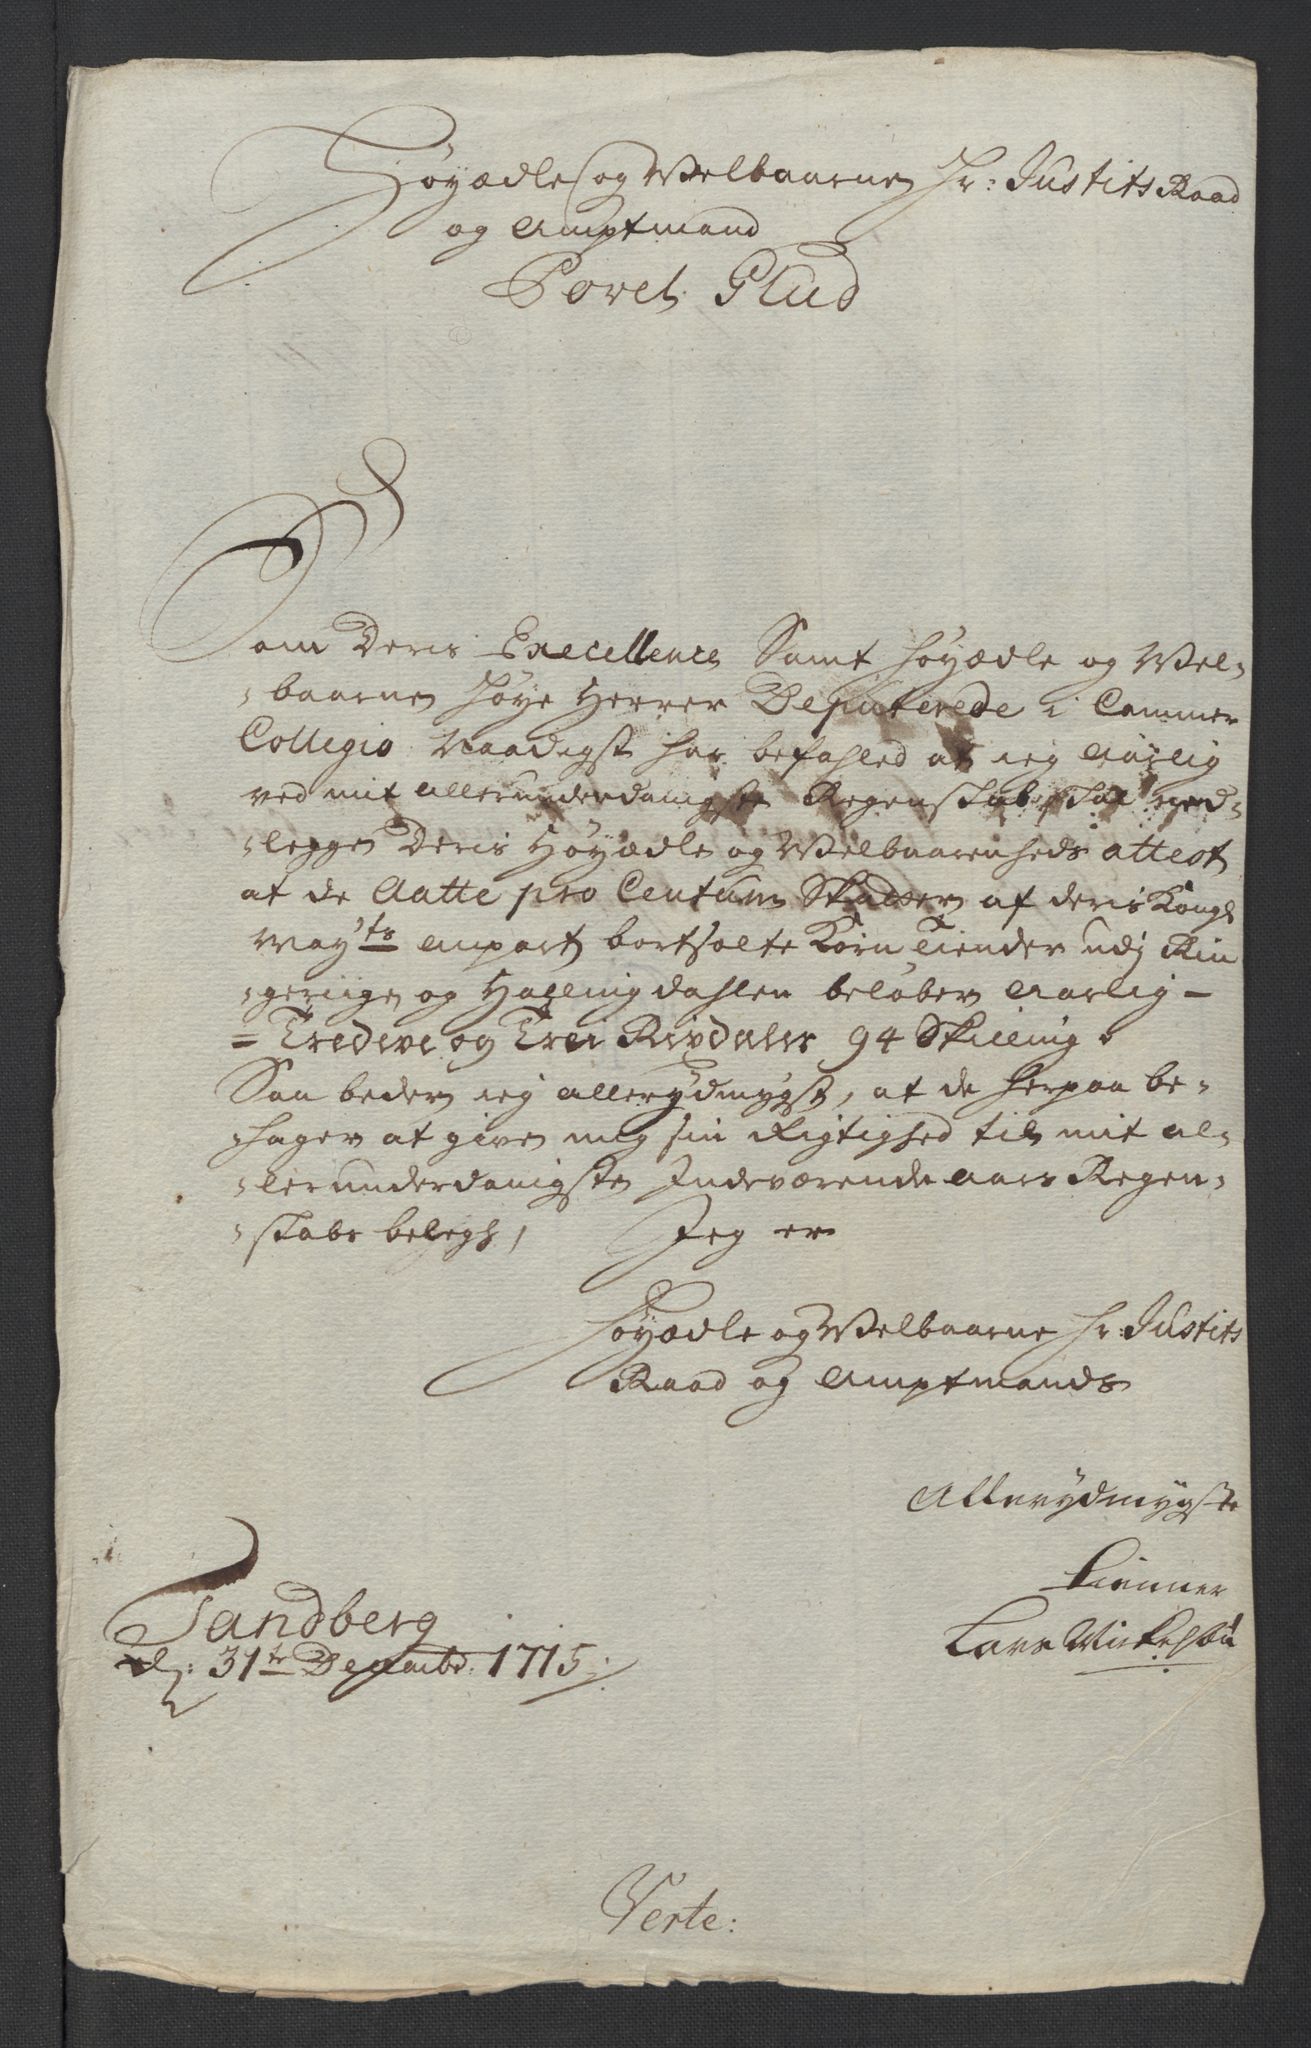 Høyædle og Velbaarne Hr: Justits Raad
og Amptmand
Povel Glud
Som Deris Execellence Samt Høyædle og Vel-
-baarne Høye Herrer Deputerede i Cammer
Collegio Naadigst har befahled at ieg Aarlig
ved mit allerunderdanigste Regenskab skal ved-
-legge Deris Høyædle og Velbaarenheds attest
at de Aatte pro Centum Skatter af deris Kongl
May:ts anpart bortsolte Korn Tiender udj Rin
-geriige og Hallingdahlen beløber Aarlig -
= Tredeve og Trei Rixdaler 94 Skilling
Saa beder ieg allerydmygst, at de herpaa be-
-hager at give mig sin Rigtighed til mit al-
-lerunderdanigste Indeværende Aars Regen-
-skabs belegh, Jeg er
Høyædle og Velbaarne Hr: Justits
Raad og Amptmands
Allerydmygste
tienner
Lars
Sandberg
d: 31te Decembr: 1715:
Verte: